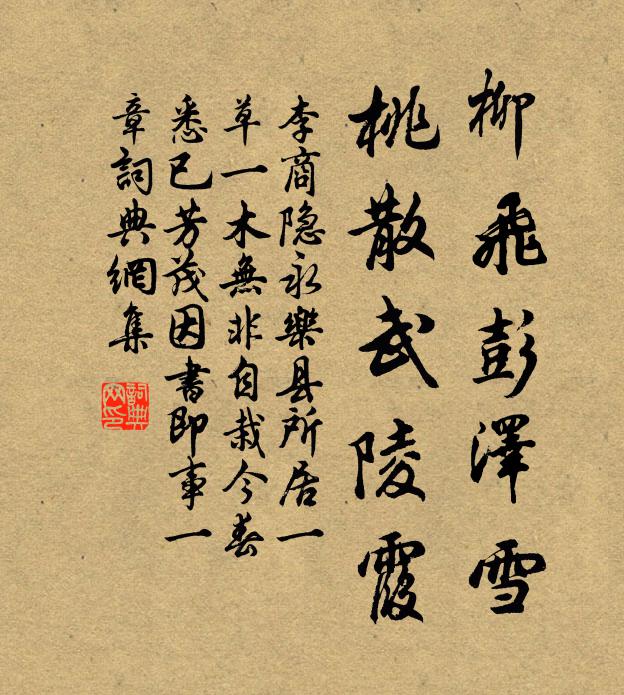 柳飛彭澤雪
桃散武陵霞
李商隐永樂县所居一
草一木無非自栽今春
悉已芳茂因書即事一
章詞典網集
詞典
网印